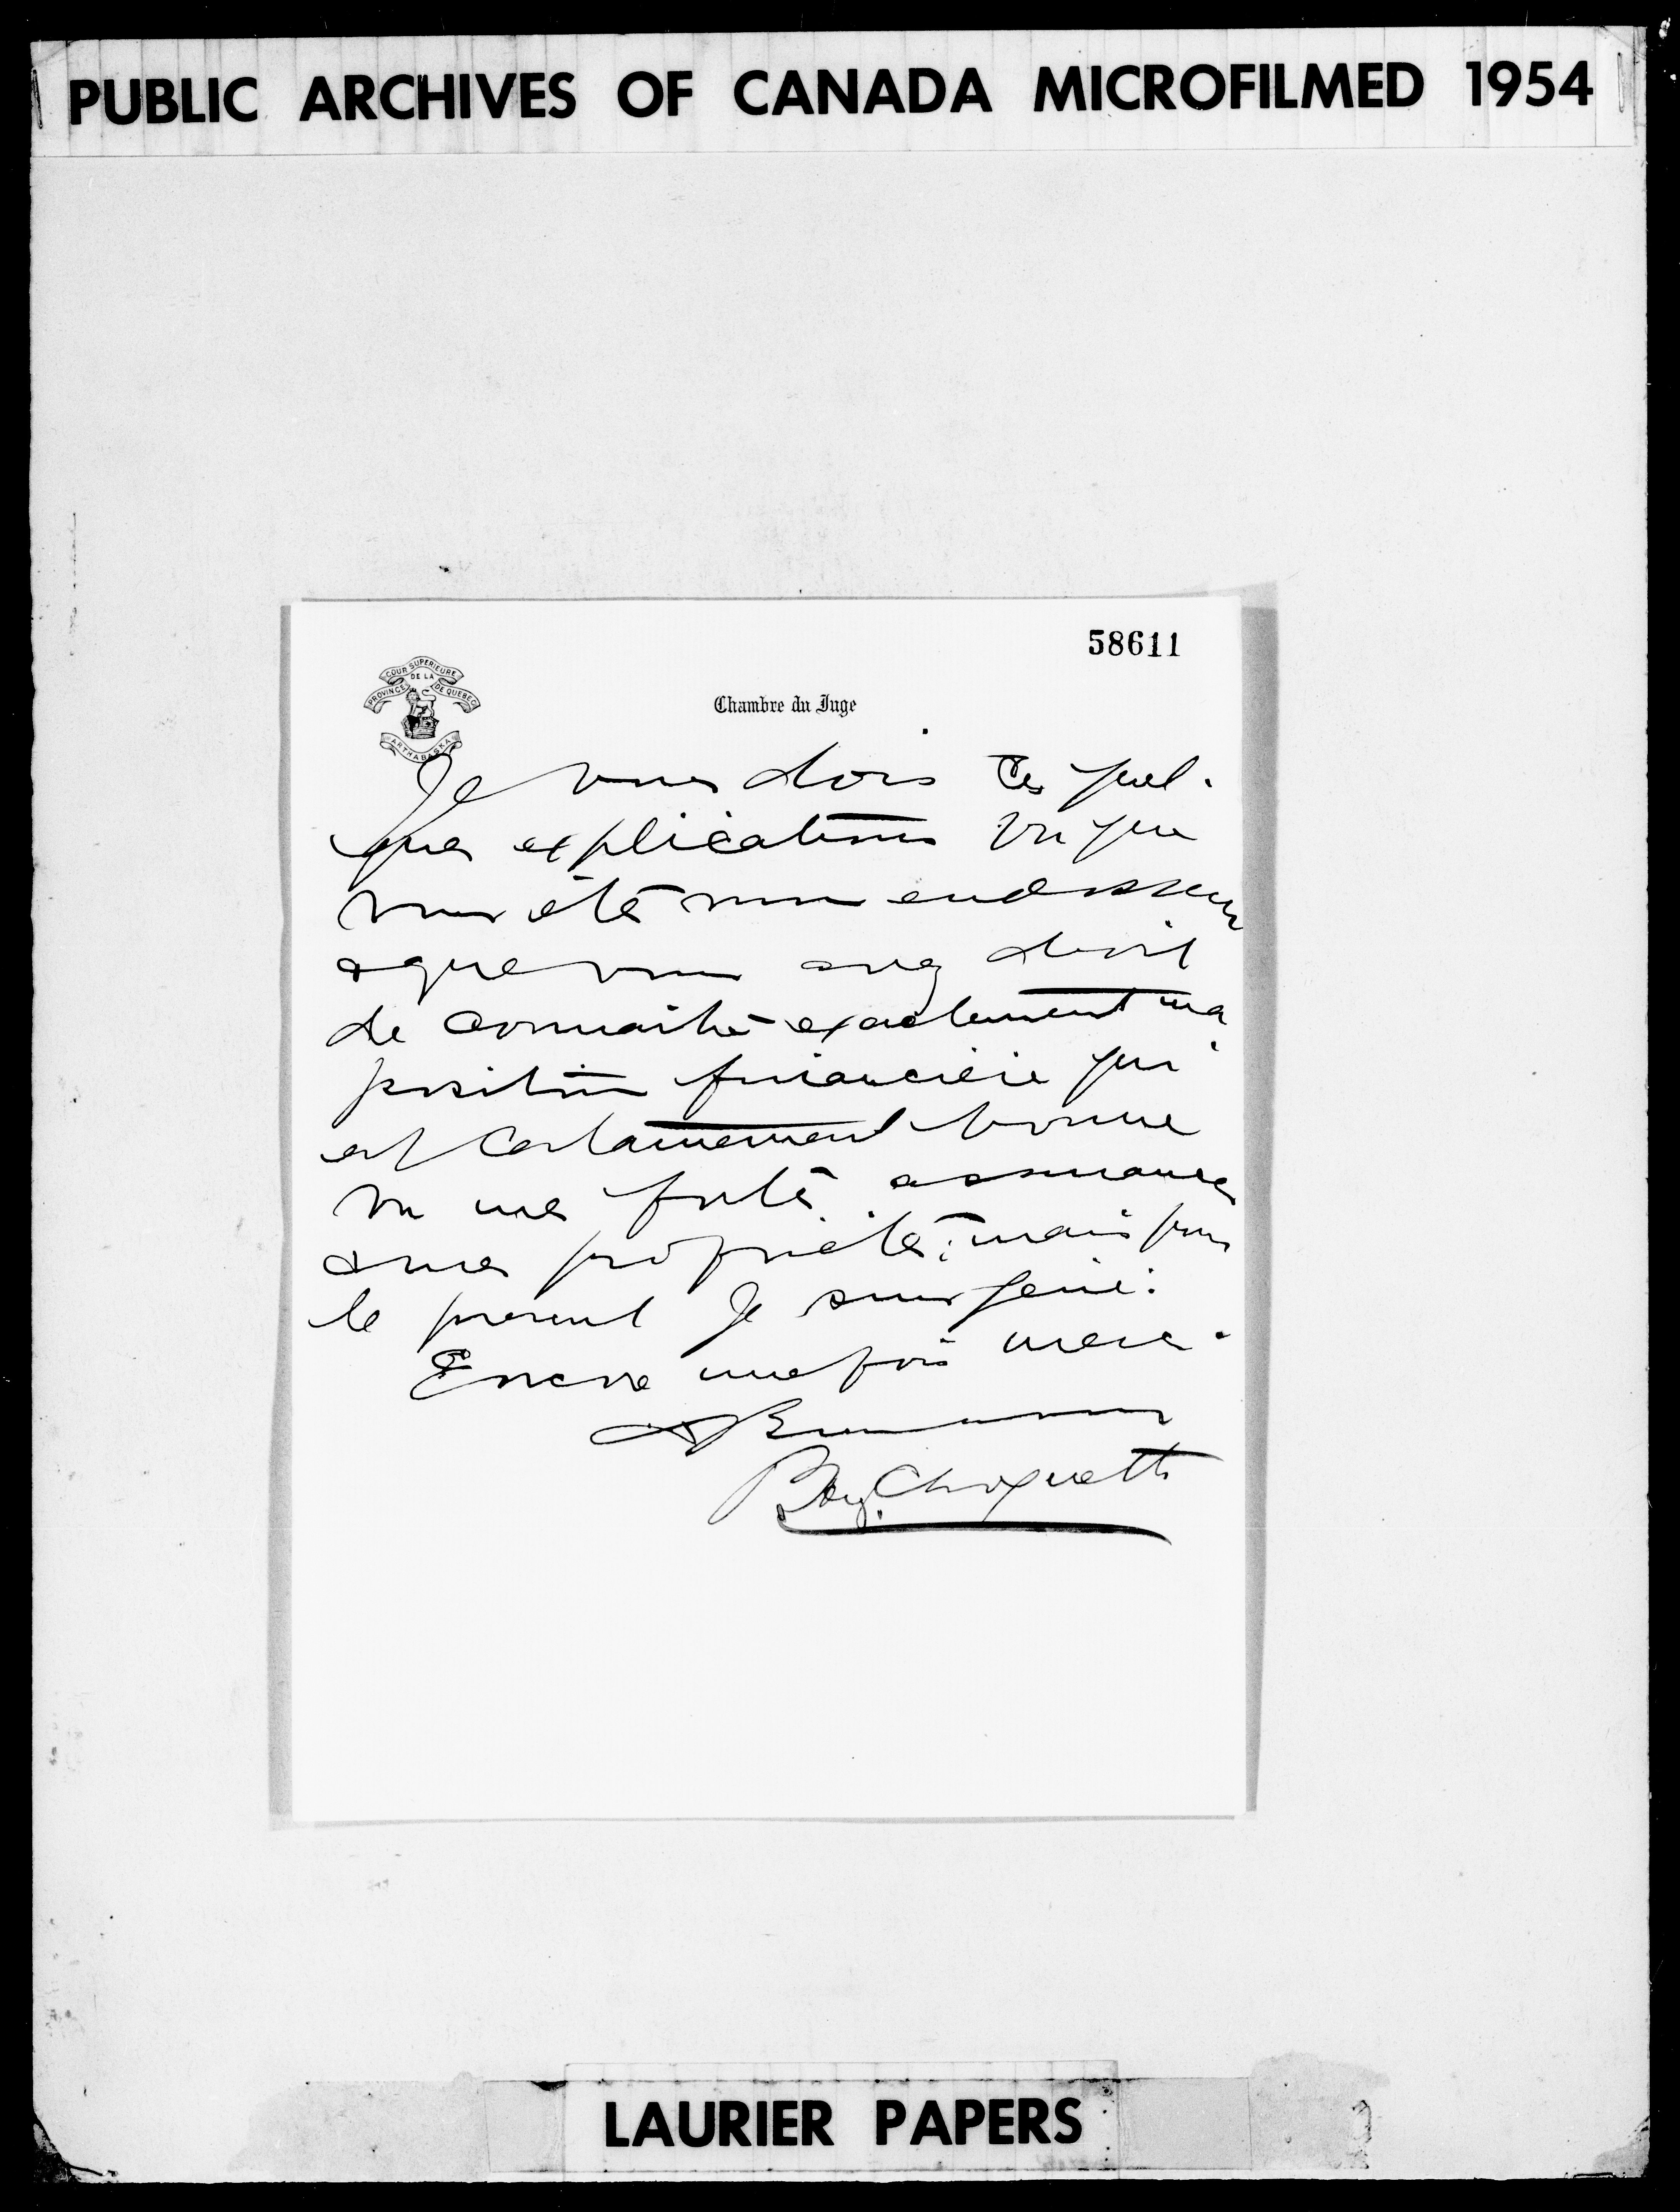 PUBLIC ARCHIVES OF CANADA MICROFILMED 1954
58611
COUR SUPERIEURE
DE LA
PROVINCE DE QUEBEC
ARTHABASKA
Chambre du Juge
Je vous dois ces quel-
ques explications vu que
vous êtes mon endosseur
& que vous avez droit
de connaître exactement ma
position financière qui
est certainement bonne
vu mes fortes assurances
& mes propriétés; mais pour
le present je suis gêné.
Encore une fois merci.
Choquette
LAURIER PAPERS